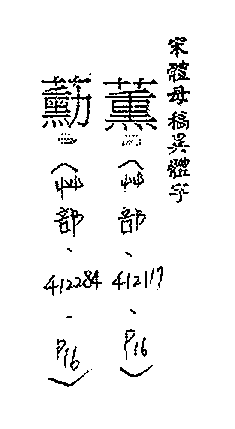 宋體母稿異體字
薫〈艸部、412117、P16〉
蘍〈艸部、412284、P16〉